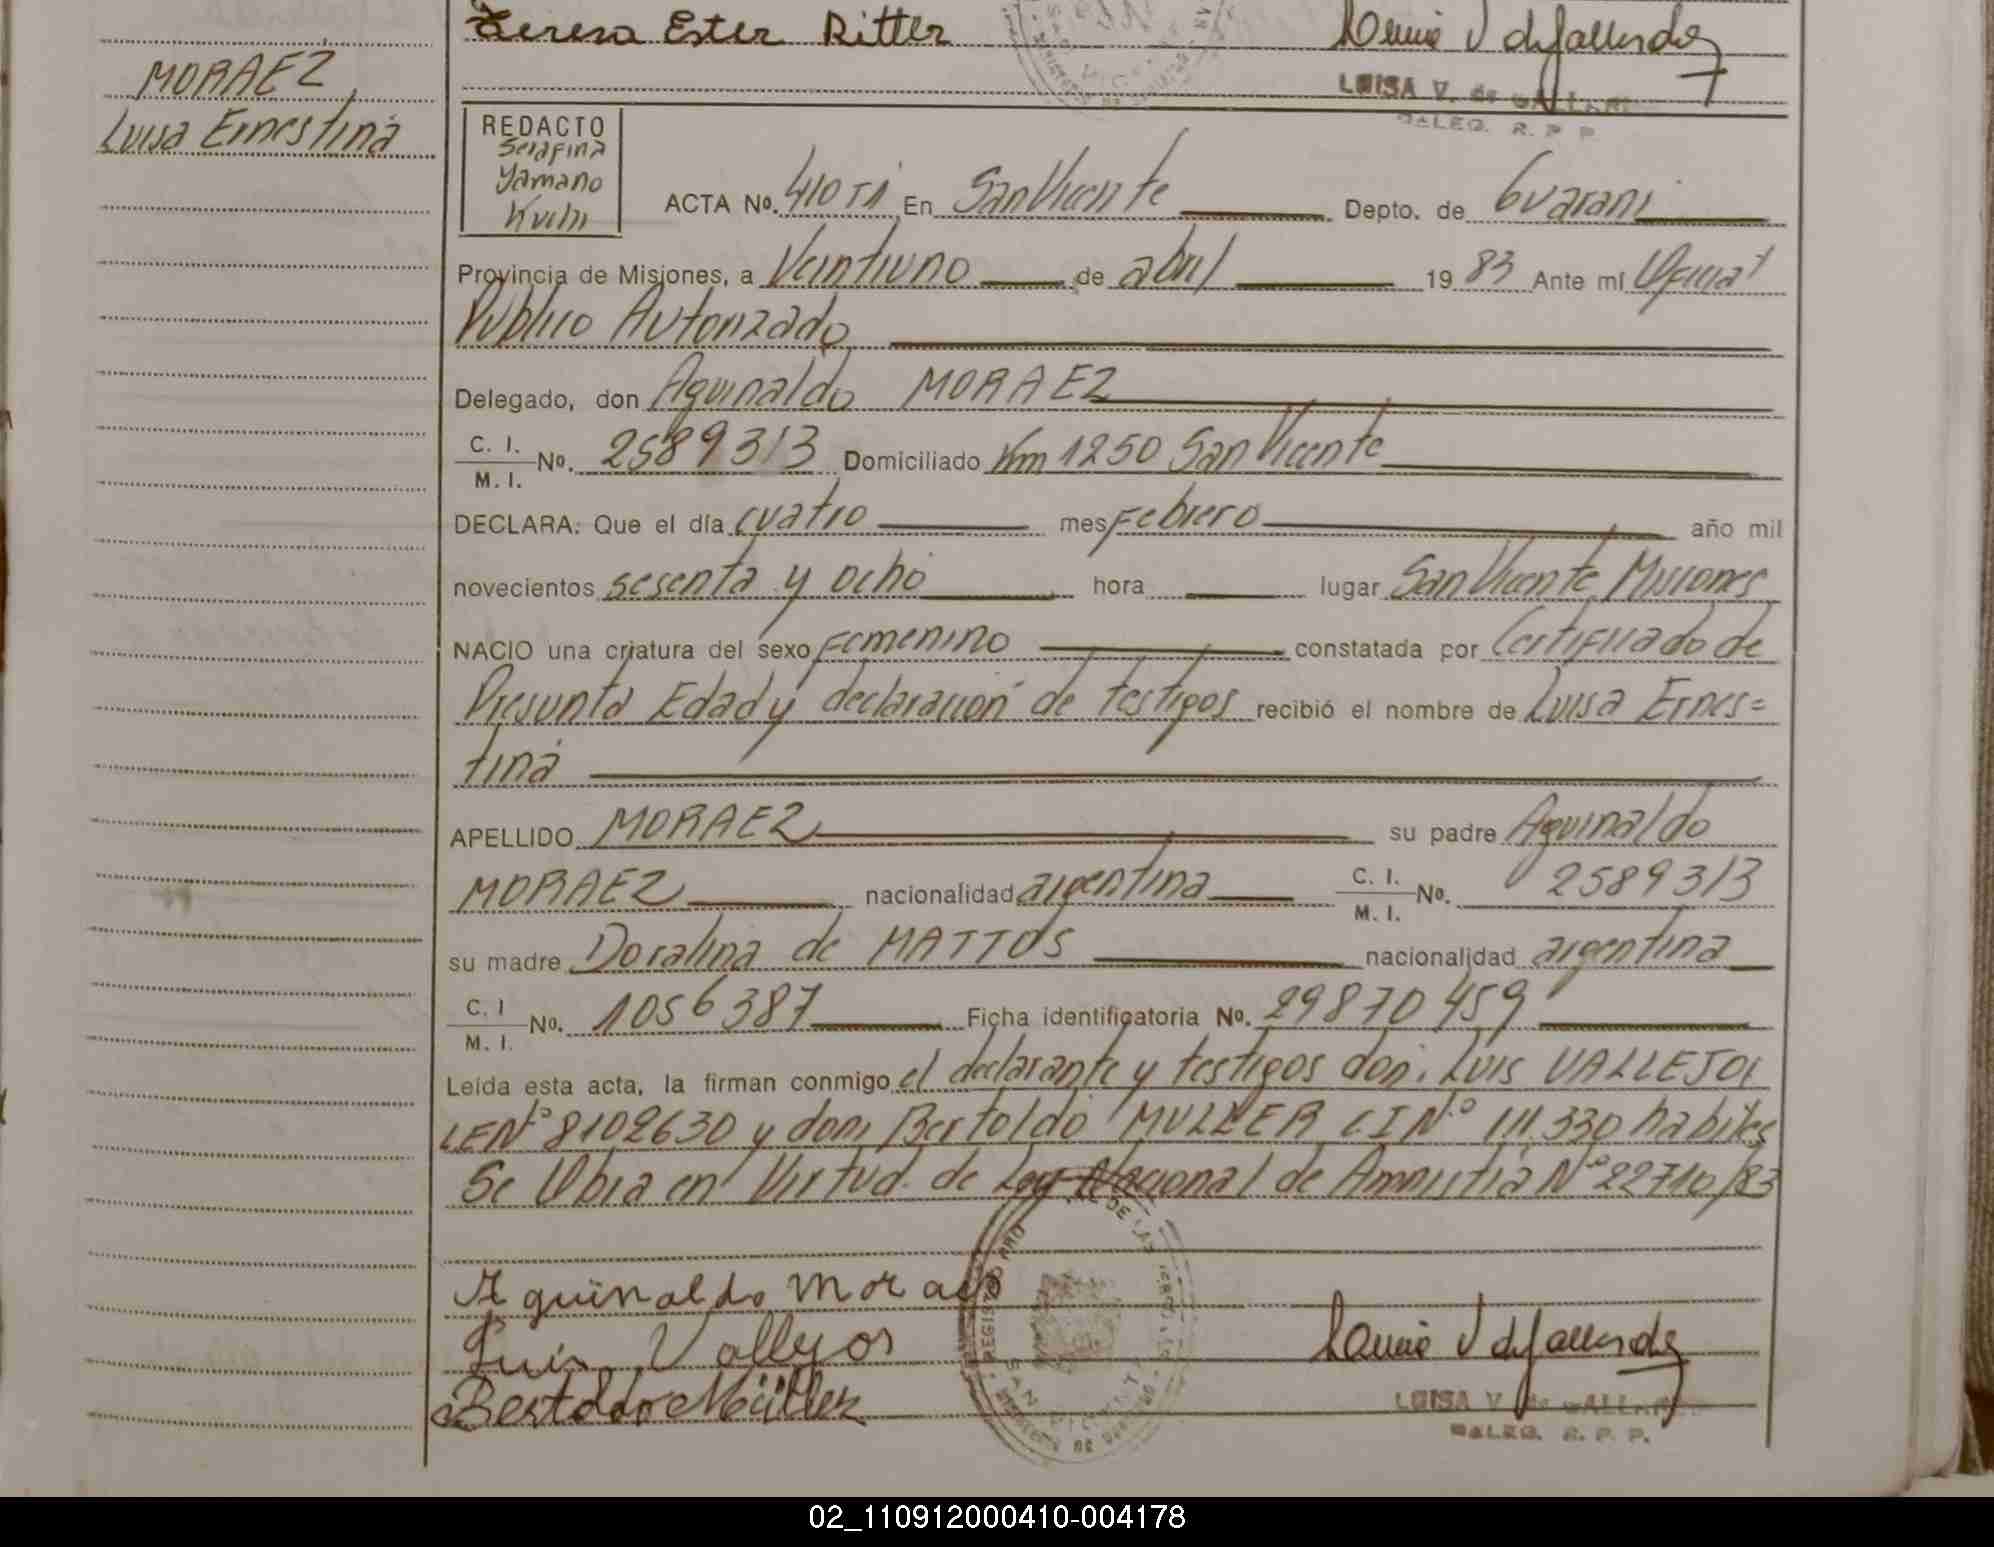 Teresa Ester Ritter
LUISA V. de GALLAR
DALEG. R. P. P.
MORAEZ
Luisa Ernestina
REDACTO
Serafina
Yamano
Kuhn
ACTA Nº. 410 TI En San Vicente Depto. de Guarani
Provincia de Misiones, a Veintiuno de abril 1983 Ante mí Oficial
Publico Autorizado
Delegado, don Aguinaldo MORAEZ
C. I. / M. I. Nº. 2589313 Domiciliado Km 1250 San Vicente
DECLARA: Que el día cuatro mes Febrero año mil
novecientos sesenta y ocho hora lugar San Vicente Misiones
NACIO una criatura del sexo Femenino constatada por Certificado de
Presunta Edad y declaración de testigos recibió el nombre de Luisa Ernes=
tina
APELLIDO MORAEZ su padre Aguinaldo
MORAEZ nacionalidad argentina C. I. / M. I. Nº. 2589313
su madre Doralina de MATTOS nacionalidad argentina
C. I / M. I. Nº. 1056387 Ficha identificatoria Nº. 29870459
Leída esta acta, la firman conmigo el declarante y testigos don: Luis VALLEJOS
LENº 8102630 y don: Bertoldo MULLER CINº 111.330 habiles
Se Obra en Virtud de Ley Nacional de Amnistia Nº 22710/83
Aguinaldo Moraes
Luis Vallejos
Bertoldo Müller
REGISTRO PRO DE LAS
SAN VICENTE
LUISA V. de GALLAR
DALEG. R. P. P.
02_110912000410-004178